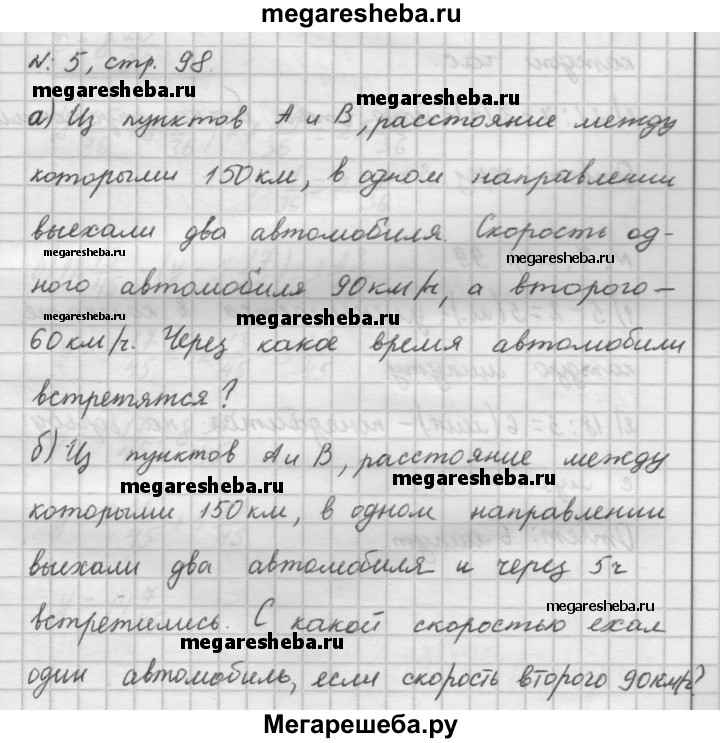 megaresheba.ru
№ 5, стр. 98.
megaresheba.ru
megaresheba.ru
а) Из пунктов А и В, расстояние между
которыми 150 км, в одном направлении
выехали два автомобиля. Скорость од-
megaresheba.ru
megaresheba.ru
ного автомобиля 90 км/ч, а второго –
megaresheba.ru
megaresheba.ru
60 км/ч. Через какое время автомобили
встретятся?
б) Из пунктов А и В, расстояние между
megaresheba.ru
megaresheba.ru
которыми 150 км, в одном направлении
выехали два автомобиля и через 5 ч
megaresheba.ru
встретились. С какой скоростью ехал
megaresheba.ru
один автомобиль, если скорость второго 90 км/ч?
Мегарешеба.ру